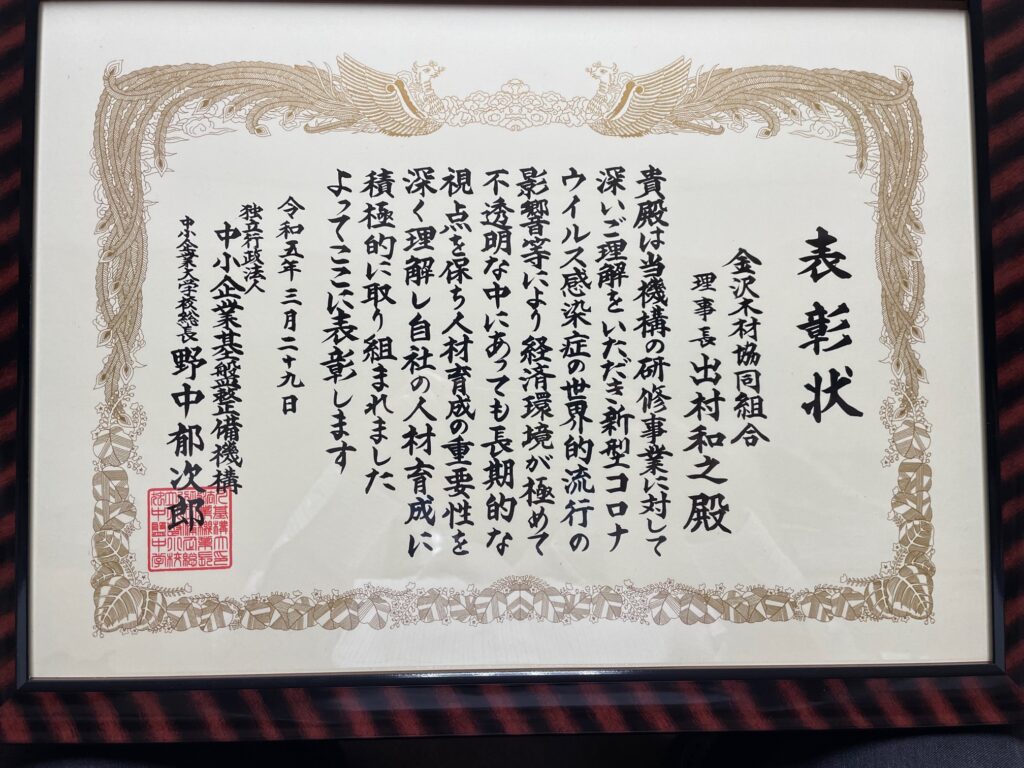 表彰状
金沢木材協同組合
理事長 出村和之殿
貴殿は当機構の研修事業に対して
深いご理解をいただき新型コロナ
ウイルス感染症の世界的流行の
影響等により経済環境が極めて
不透明な中にあっても長期的な
視点を保ち人材育成の重要性を
深く理解し自社の人材育成に
積極的に取り組まれました
よってここに表彰します
令和五年三月二十九日
独立行政法人
中小企業基盤整備機構
中小企業大学校総長 野中郁次郎